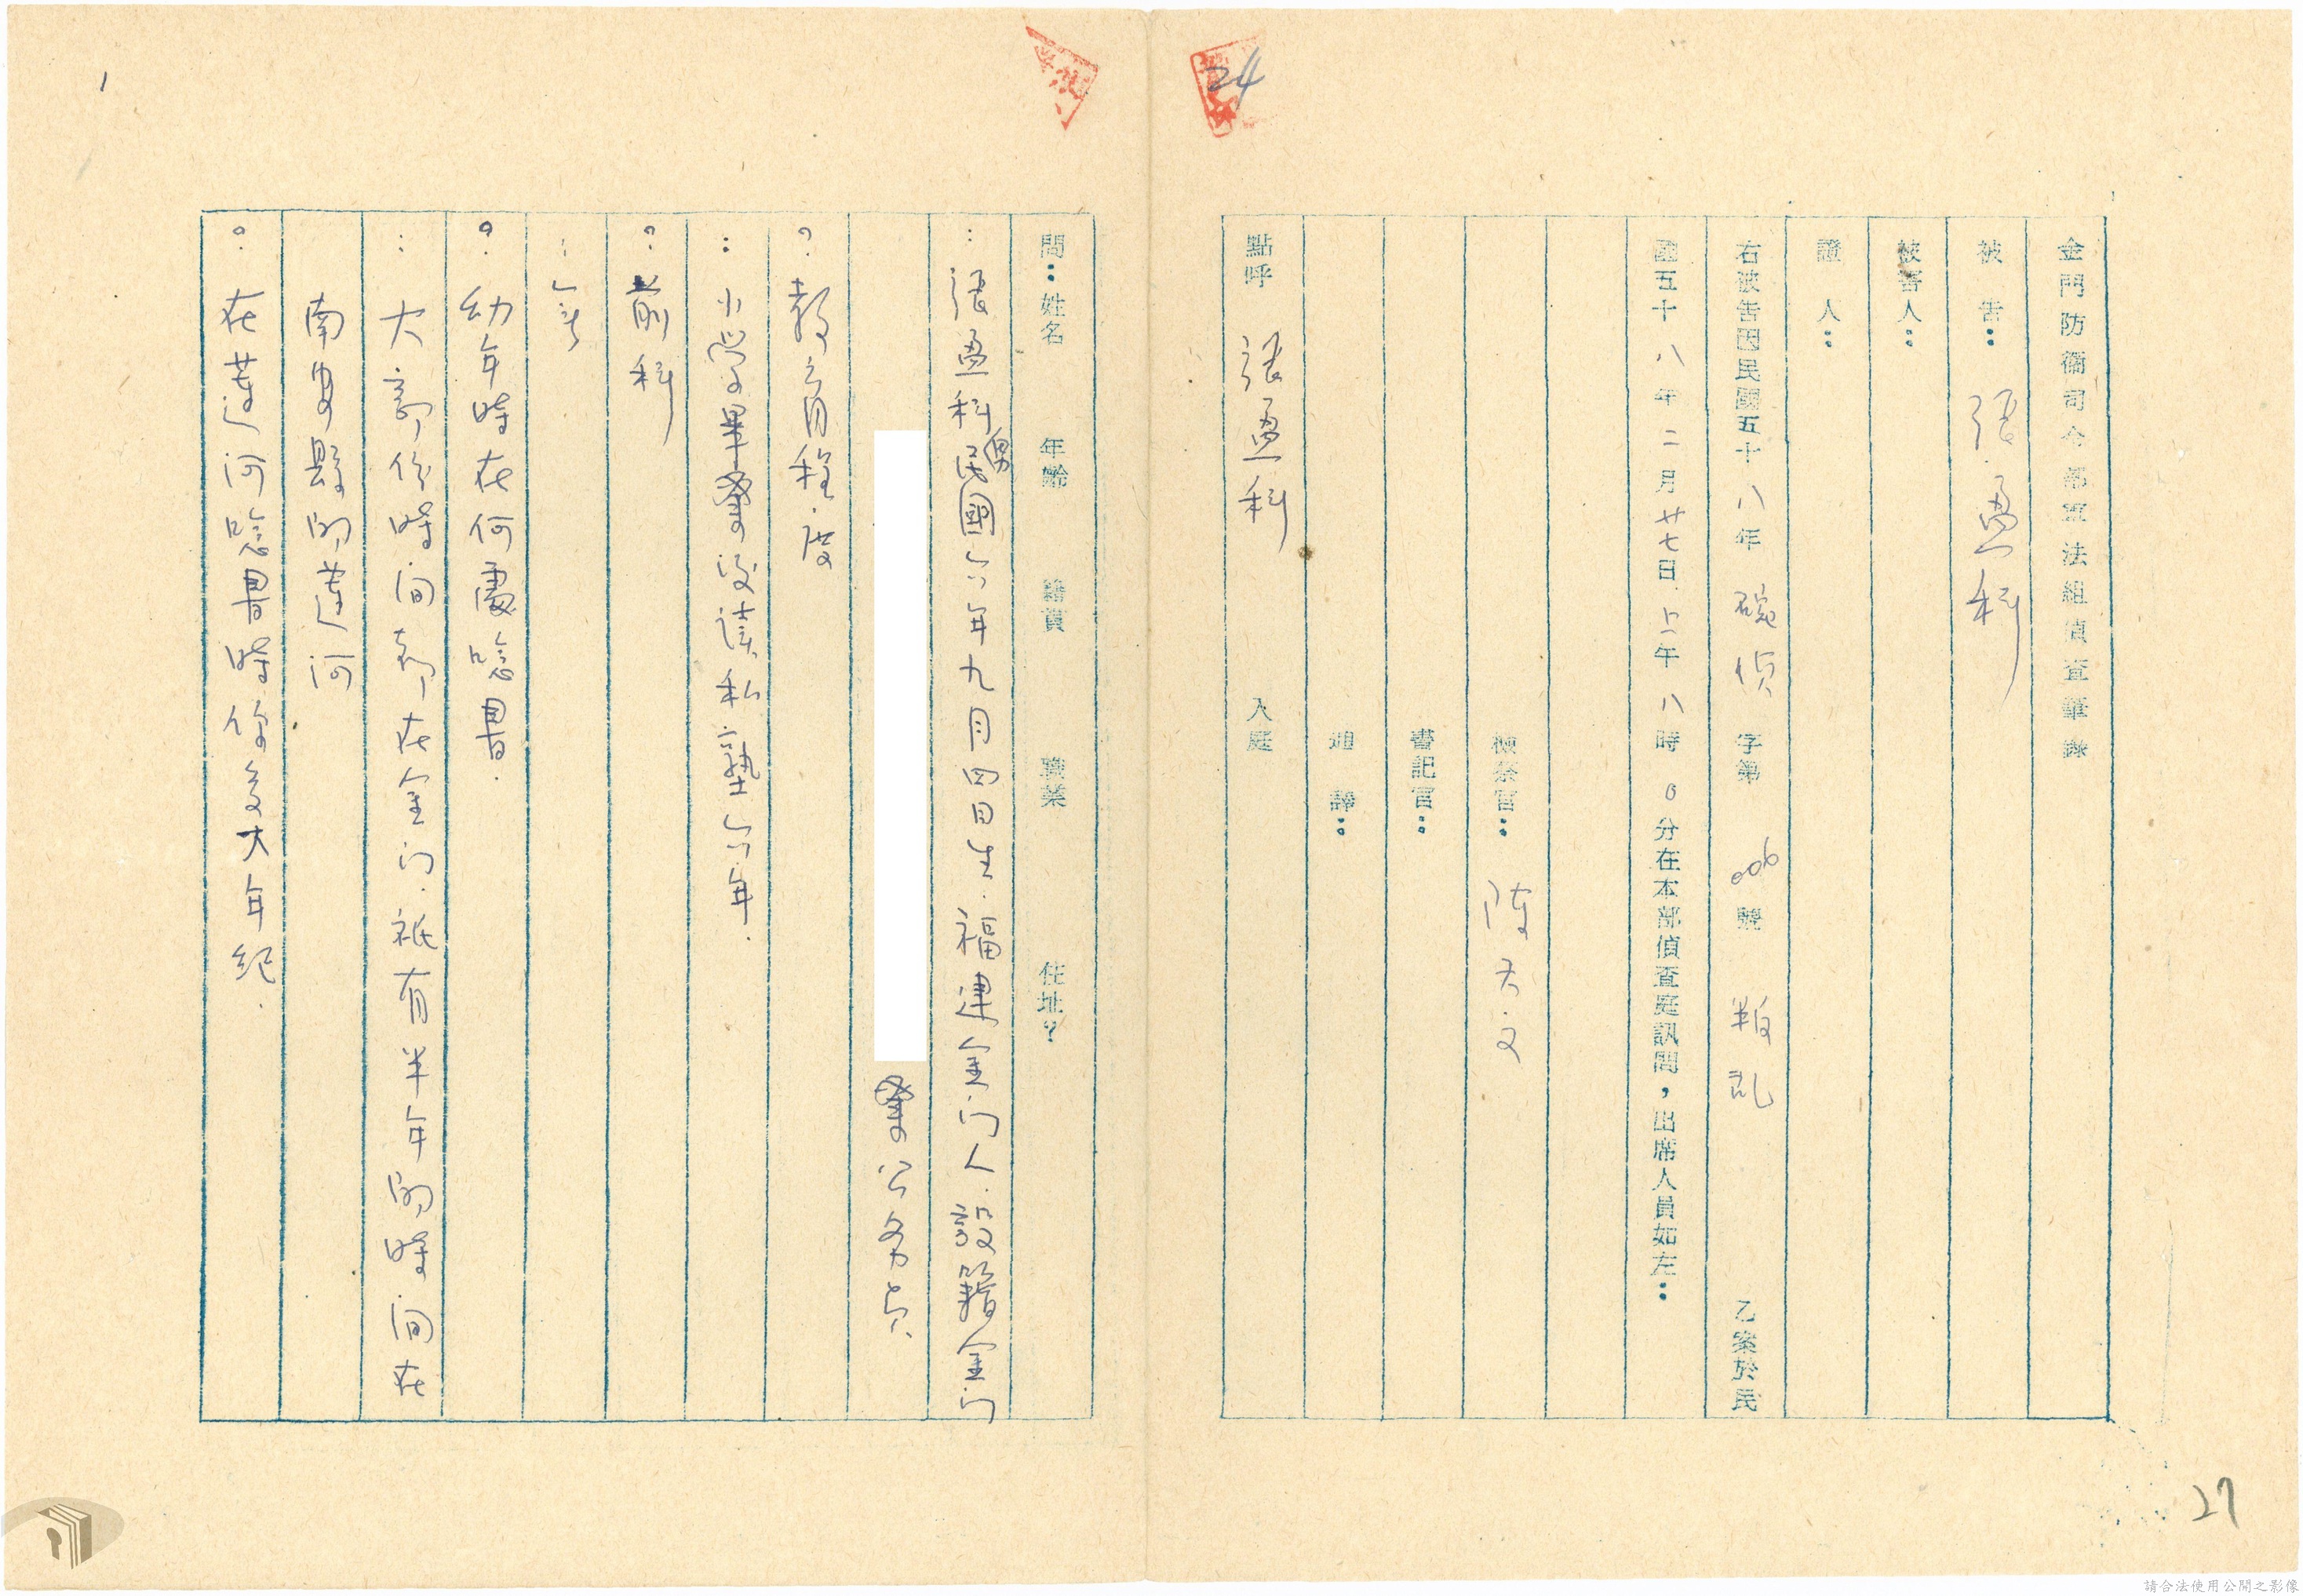 24
金門防衛司令部軍法組偵查筆錄
被告：張盈科
被害人：
證人：
右被告因民國五十八年碗偵字第006號叛乱乙案於民
國五十八年二月廿七日上午八時0分在本部偵查庭訊問，出席人員如左：
檢察官：陳天文
書記官：
通譯：
點呼 張盈科 入庭
27
1
問：姓名 年齡 籍貫 職業 住址？
：張盈科男民國六年九月四日生．福建金門人．設籍金門
公务員
？：教育程度
：小學畢業後讀私塾六年．
？：前科
：無
？：幼年時在何處唸書．
：大部份時间都在金门．祇有半年的時间在
南安縣的蓮河
？：在蓮河唸書時你多大年紀．
請合法使用公開之影像